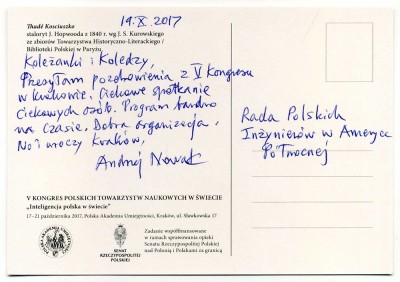 14.X.2017
Thadé Kosciuszko
staloryt J. Hopwooda z 1840 r. wg J. S. Kurowskiego
ze zbiorów Towarzystwa Historyczno-Literackiego /
Biblioteki Polskiej w Paryżu
Koleżanki i Koledzy,
Przesyłam pozdrowienia z V Kongresu
w Krakowie. Ciekawe spotkanie
Ciekawych osób. Program bardzo
na czasie. Dobra organizacja,
No i uroczy Kraków,
Andrzej Nowak
Rada Polskich
Inżynierów w Ameryce
Północnej
V KONGRES POLSKICH TOWARZYSTW NAUKOWYCH W ŚWIECIE
„Inteligencja polska w świecie"
17–21 października 2017, Polska Akademia Umiejętności, Kraków, ul. Sławkowska 17
SENAT
RZECZYPOSPOLITEJ
POLSKIEJ
Zadanie współfinansowane
w ramach sprawowania opieki
Senatu Rzeczypospolitej Polskiej
nad Polonią i Polakami za granicą